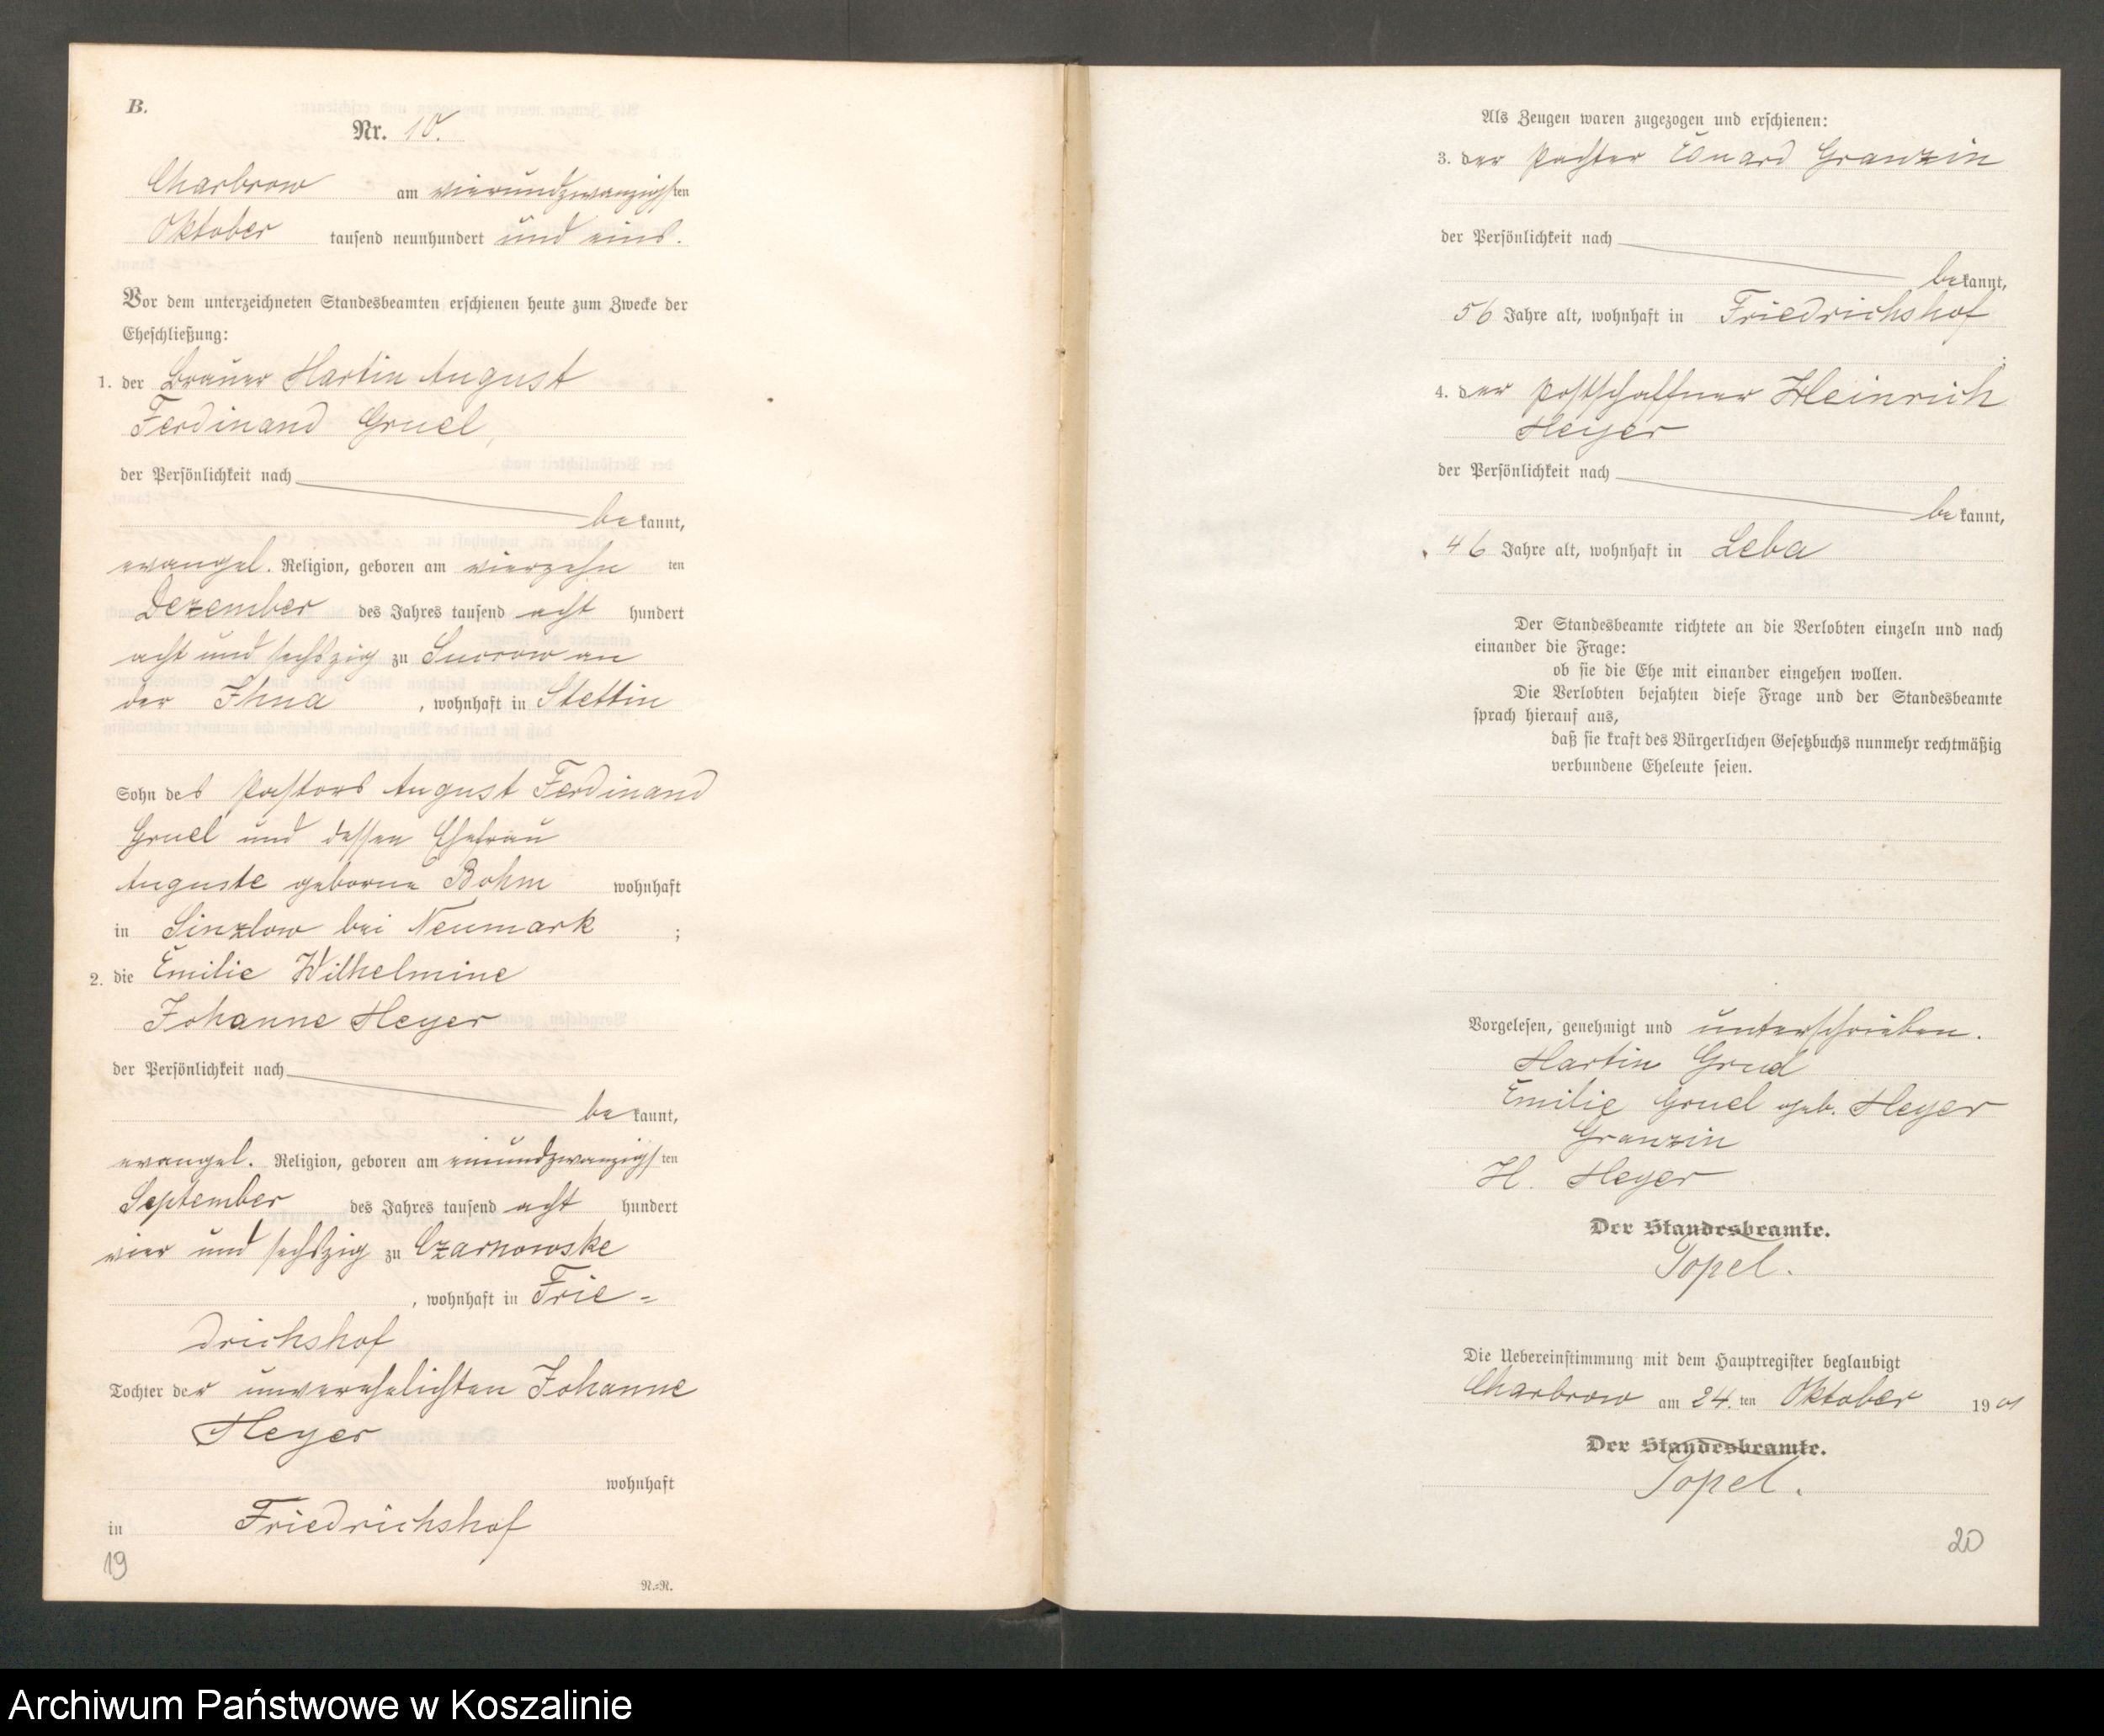 B.
Nr. 10.
Charbrow am vierundzwanzigsten
Oktober tausend neunhundert und eins.
Vor dem unterzeichneten Standesbeamten erschienen heute zum Zwecke der
Eheschließung:
1. der Brauer Martin August
Ferdinand Gruel,
der Persönlichkeit nach
bekannt,
evangel. Religion, geboren am vierzehnten
Dezember des Jahres tausend acht hundert
acht und sechszig zu Suckow an
der Ihna, wohnhaft in Stettin
Sohn des Pastors August Ferdinand
Gruel und dessen Ehefrau
Auguste geborne Bohm wohnhaft
in Sinzlow bei Neumark;
2. die Emilie Wilhelmine
Johanne Heyer
der Persönlichkeit nach
bekannt,
evangel. Religion, geboren am einundzwanzigsten
September des Jahres tausend acht hundert
vier und sechszig zu Czarnowske
, wohnhaft in Frie=
drichshof
Tochter der unverehelichten Johanne
Heyer
wohnhaft
in Friedrichshof
19
N.=N.
Als Zeugen waren zugezogen und erschienen:
3. der Pächter Eduard Granzin
der Persönlichkeit nach
bekannt,
56 Jahre alt, wohnhaft in Friedrichshof
;
4. der Postschaffner Heinrich
Heyer
der Persönlichkeit nach
bekannt,
46 Jahre alt, wohnhaft in Leba
Der Standesbeamte richtete an die Verlobten einzeln und nach
einander die Frage:
ob sie die Ehe mit einander eingehen wollen.
Die Verlobten bejahten diese Frage und der Standesbeamte
sprach hierauf aus,
daß sie kraft des Bürgerlichen Gesetzbuchs nunmehr rechtmäßig
verbundene Eheleute seien.
Vorgelesen, genehmigt und unterschrieben.
Martin Gruel
Emilie Gruel geb. Heyer
Granzin
H. Heyer
Der Standesbeamte.
Topel.
Die Uebereinstimmung mit dem Hauptregister beglaubigt
Charbrow am 24.ten Oktober 1901
Der Standesbeamte.
Topel.
20
Archiwum Państwowe w Koszalinie